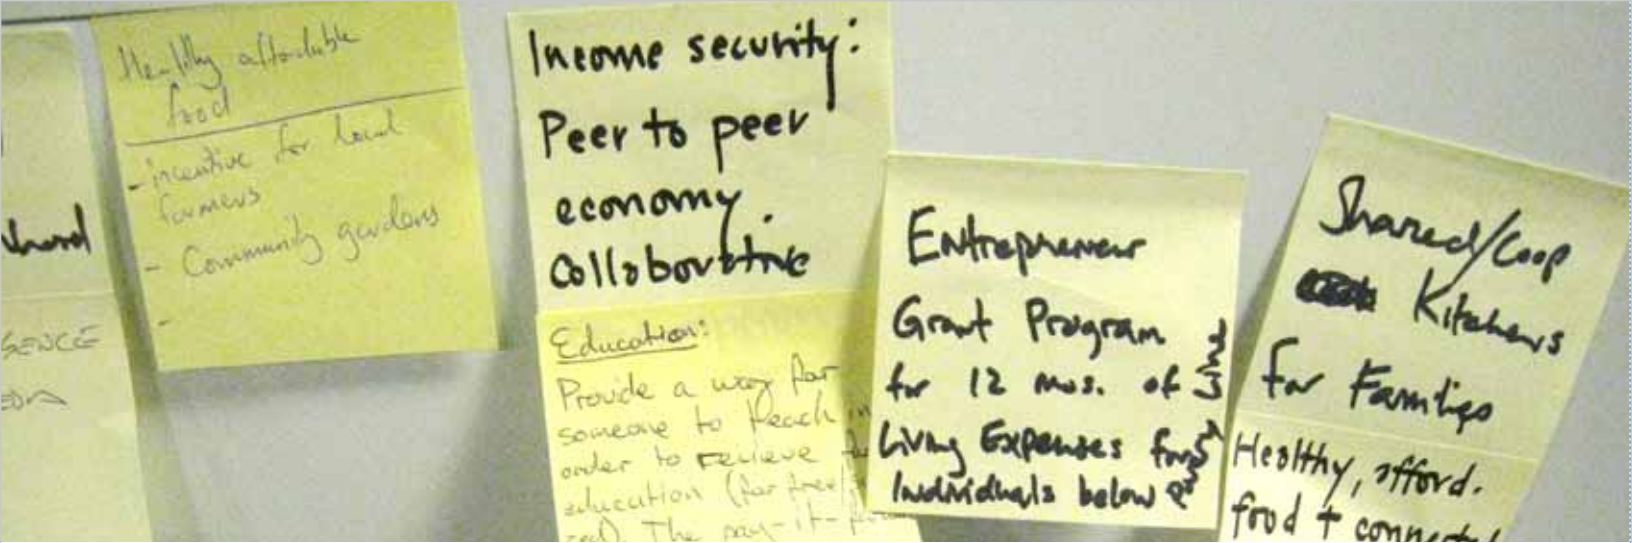 shared
GENCE
Healthy affordable
food
- incentive for local
farmers
- Community gardens
-
Income security:
Peer to peer
economy.
Collaborative
Education:
Provide a way for
someone to teach in
order to receive
education (for free
The pay-it-
Entrepreneur
Grant Program
for 12 mos. of
Living Expenses for
Individuals below
Line
Shared/Coop
Kitchens
for Families
Healthy, afford.
food + connected